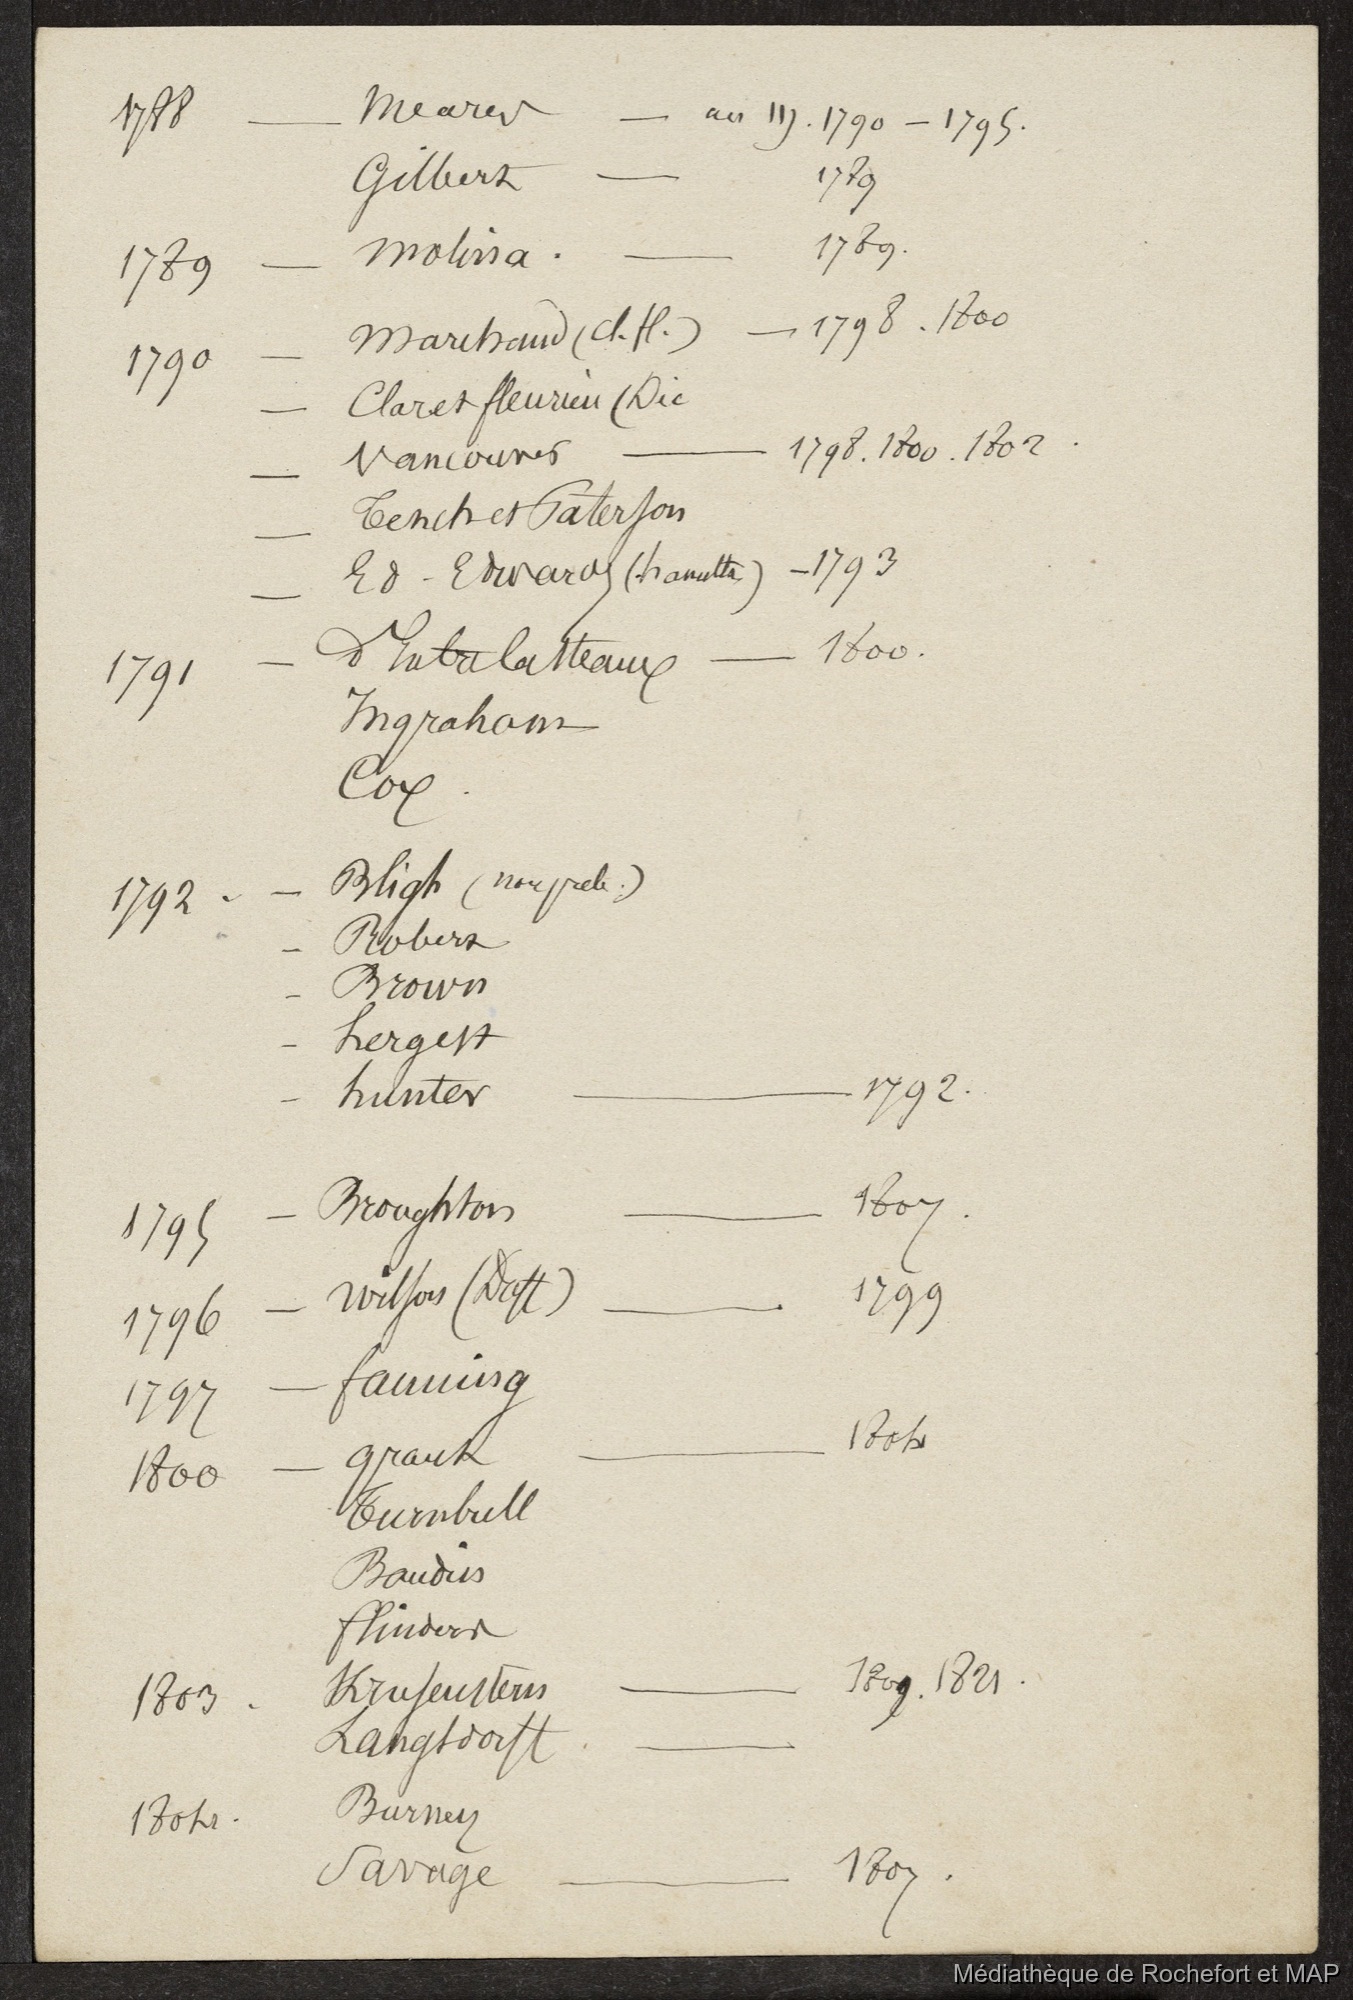 1788 — Meares — an III. 1790 – 1795.
Gilbert — 1789
1789 — Molina. — 1789.
1790 — Marchand (Cl. fl.) — 1798. 1800
— Claret fleurieu (Die
— Vancouver — 1798. 1800. 1802.
— Tench et Paterson
— Ed. Edwards (hamilton) – 1793
1791 — d'Entrecasteaux — 1800.
Ingraham
Cox.
1792. – Bligh
– Robert
– Brown
– hergest
– hunter — 1792.
1795 — Broughton — 1807.
1796 — Wilson (Duff) — 1799
1797 — fanning
1800 — grant — 1804
Turnbull
Baudin
flinders
1803. Krusenstern — 1809. 1821.
Langsdorff. —
1804. Burney
Savage — 1807.
Médiathèque de Rochefort et MAP